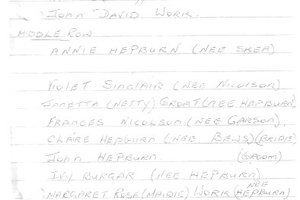 JOHN DAVID WORK.
MIDDLE ROW
ANNIE HEPBURN (NEE SKEA)
VIOLET SINCLAIR (NEE NICOLSON)
JANETTA (NETTY) GROAT (NEE HEPBURN)
FRANCES NICOLSON (NEE GARSON)
CLAIRE HEPBURN (NEE BEWS) (BRIDE)
JOHN HEPBURN (GROOM)
IVY BURGAR (NEE HEPBURN)
MARGARET ROSE (MAIDIE) WORK (NEE HEPBURN)